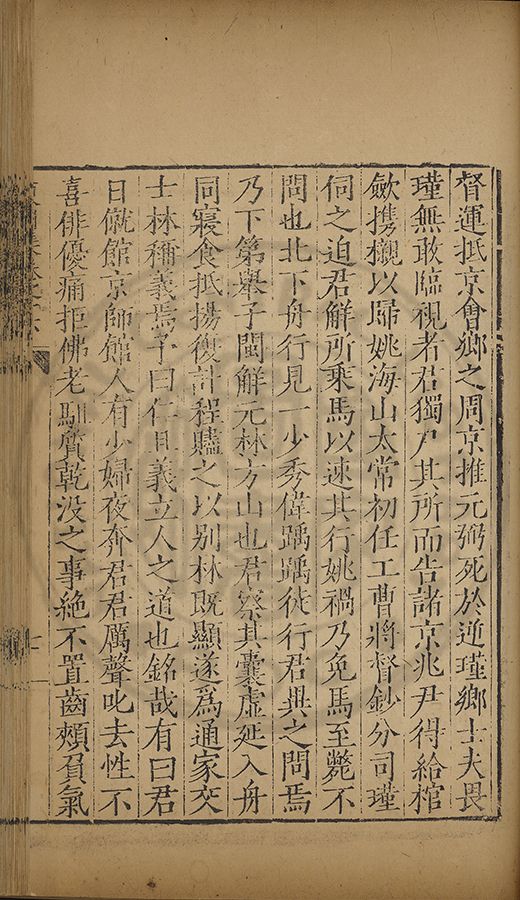 督運抵京會鄉之周京推元弼死於逆瑾鄉士夫畏
瑾無敢臨視者君獨尸其所而告諸京兆尹得給棺
歛携櫬以歸姚海山太常初任工曹將督鈔分司瑾
伺之迫君解所乘馬以速其行姚禍乃免馬至斃不
問也北下舟行見一少秀偉踽踽徒行君異之問焉
乃下第舉子閩解元林方山也君察其囊虛延入舟
同寢食抵揚復計程贐之以别林既顯遂爲通家交
士林稱義焉予曰仁且義立人之道也銘哉有曰君
日僦館京師館人有少婦夜奔君君厲聲叱去性不
喜俳優痛拒佛老馹質乾没之事絶不置齒頰負氣